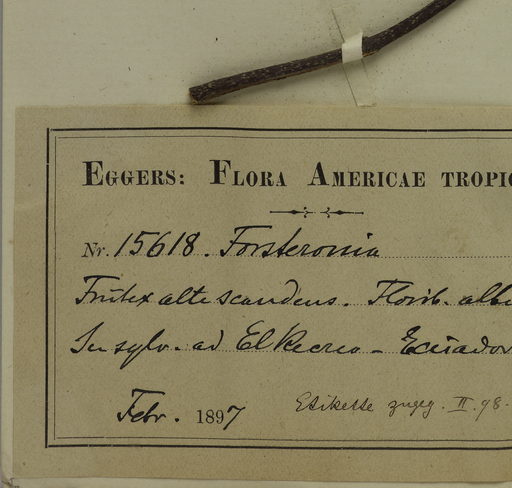 EGGERS: FLORA AMERICAE TROPIC
Nr. 15618. Forsteronia
Frutex alte scandens. Florib. alb
In sylv. ad El Recreo - Ecuador
Febr. 1897 Etikette zugeg. II. 98.